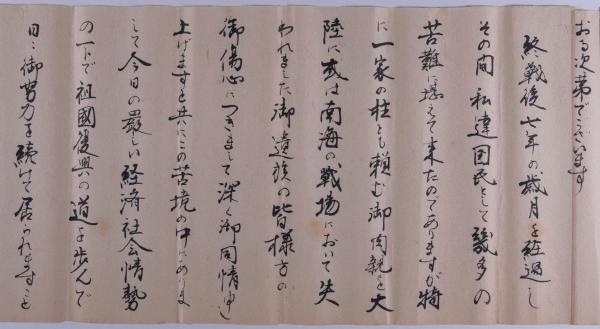 おる次第でございます
終戦後七年の歳月を経過し
その間私達国民として幾多の
苦難に堪えて来たのでありますが特
に一家の柱とも頼む御肉親を大
陸に或は南海の戦場において失
われました御遺族の皆様方の
御傷心につきまして深く御同情申し
上げますと共にこの苦境の中にありま
して今日の厳しい経済社会情勢
の下で祖國復興の道を歩んで
日々御努力を続けて居られますこと